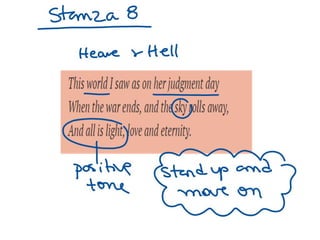 Stanza 8
Heave & Hell
This world I saw as on her judgment day
When the war ends, and the sky rolls away,
And all is light, love and eternity.
positive
tone
Stand up and
move on